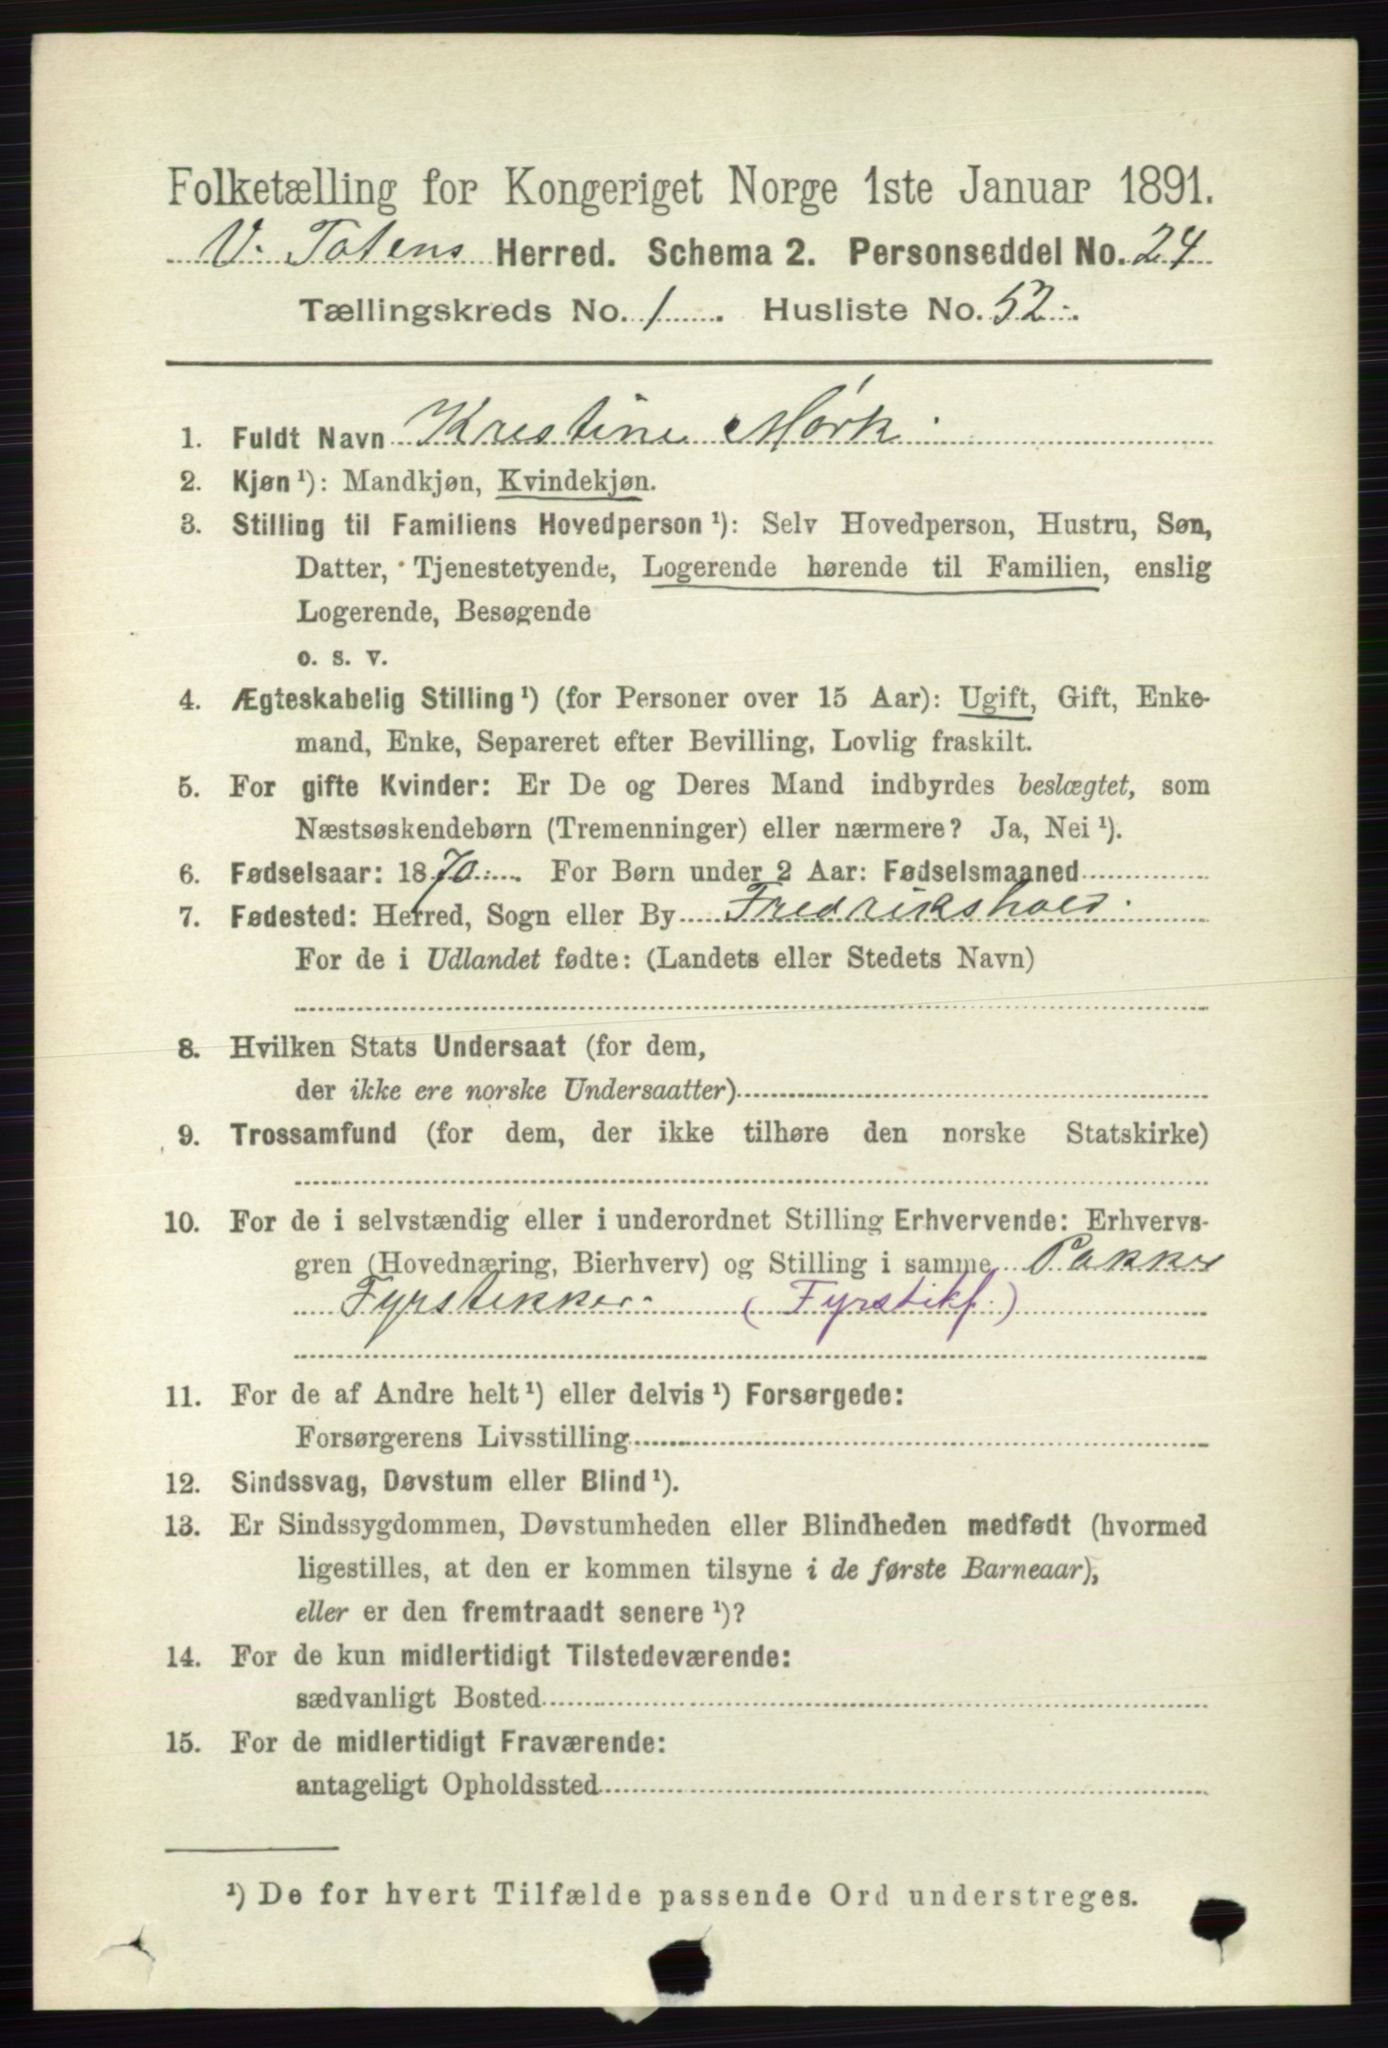 Folketælling for Kongeriget Norge 1ste Januar 1891.
V. Totens Herred. Schema 2. Personseddel No. 24
Tællingskreds No. 1 . Husliste No. 52.
1. Fuldt Navn Kristine Mørk
2. Kjøn ¹): Mandkjøn, Kvindekjøn.
3. Stilling til Familiens Hovedperson ¹): Selv Hovedperson, Hustru, Søn,
Datter, Tjenestetyende, Logerende hørende til Familien, enslig
Logerende, Besøgende
o. s. v.
4. Ægteskabelig Stilling ¹) (for Personer over 15 Aar): Ugift, Gift, Enke-
mand, Enke, Separeret efter Bevilling, Lovlig fraskilt.
5. For gifte Kvinder: Er De og Deres Mand indbyrdes beslægtet, som
Næstsøskendebørn (Tremenninger) eller nærmere? Ja, Nei ¹).
6. Fødselsaar: 1870. For Børn under 2 Aar: Fødselsmaaned
7. Fødested: Herred, Sogn eller By Fredrikshald.
For de i Udlandet fødte: (Landets eller Stedets Navn)
8. Hvilken Stats Undersaat (for dem,
der ikke ere norske Undersaatter)
9. Trossamfund (for dem, der ikke tilhøre den norske Statskirke)
10. For de i selvstændig eller i underordnet Stilling Erhvervende: Erhvervs-
gren (Hovednæring, Bierhverv) og Stilling i samme Pakker
Fyrstikker. (Fyrstikf.)
11. For de af Andre helt ¹) eller delvis ¹) Forsørgede:
Forsørgerens Livsstilling
12. Sindssvag, Døvstum eller Blind ¹).
13. Er Sindssygdommen, Døvstumheden eller Blindheden medfødt (hvormed
ligestilles, at den er kommen tilsyne i de første Barneaar),
eller er den fremtraadt senere ¹)?
14. For de kun midlertidigt Tilstedeværende:
sædvanligt Bosted
15. For de midlertidigt Fraværende:
antageligt Opholdssted
¹) De for hvert Tilfælde passende Ord understreges.